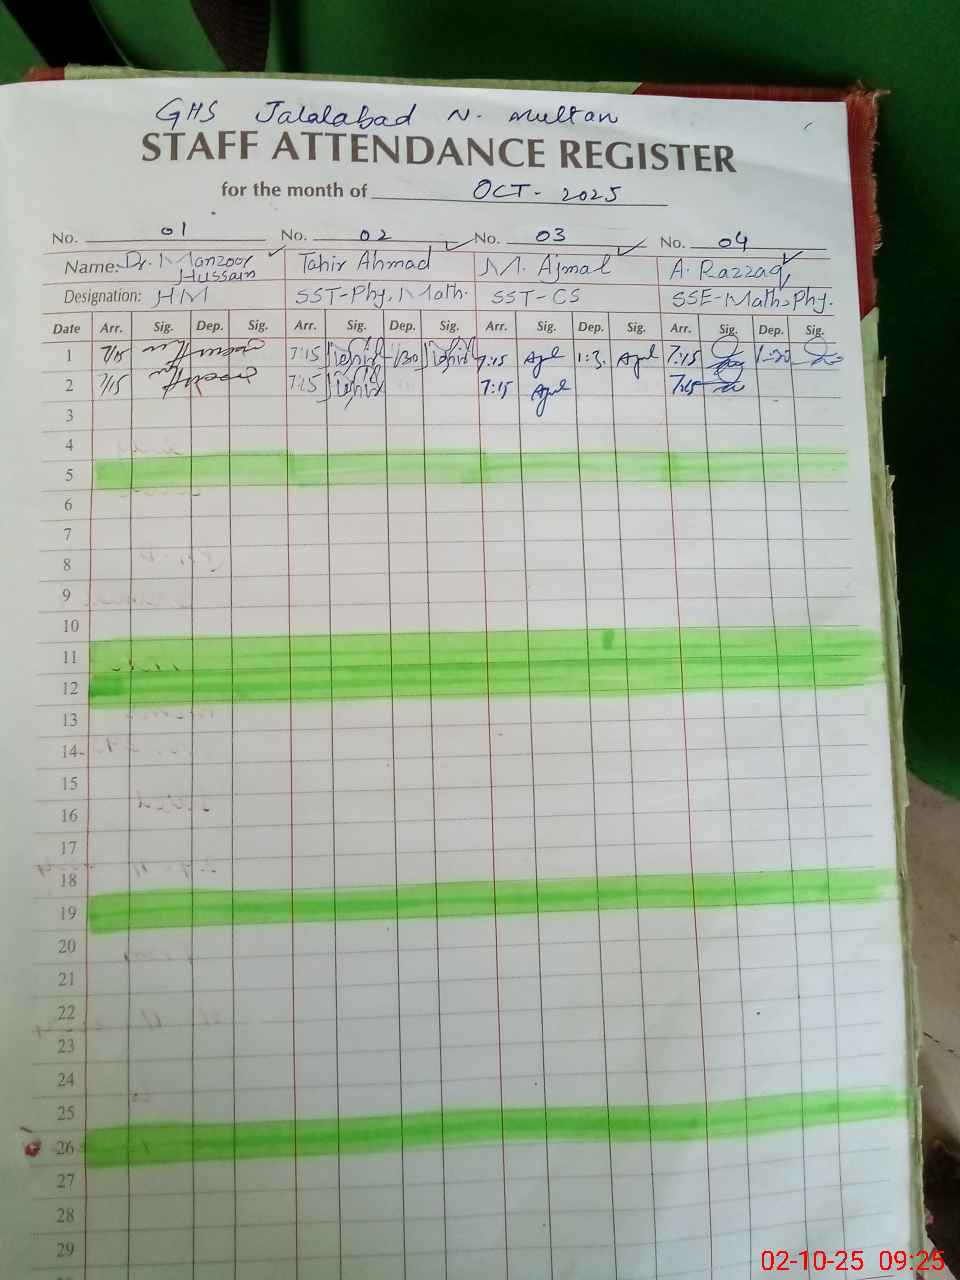 GHS Jalalabad N. Multan
STAFF ATTENDANCE REGISTER
for the month of OCT - 2025
No. 01 No. 02 No. 03 No. 04
Name: Dr. Manzoor Hussain Tahir Ahmad M. Ajmal A. Razzaq
Designation: HM SST-Phy, Math. SST-CS SSE-Math, Phy.
Date Arr. Sig. Dep. Sig. Arr. Sig. Dep. Sig. Arr. Sig. Dep. Sig. Arr. Sig. Dep. Sig.
1 7:15 1:30 7:15 7:15
2 7:15 7:15 7:15 7:15
3
4
5
6
7
8
9
10
11
12
13
14
15
16
17
18
19
20
21
22
23
24
25
26
27
28
29
02-10-25 09:25